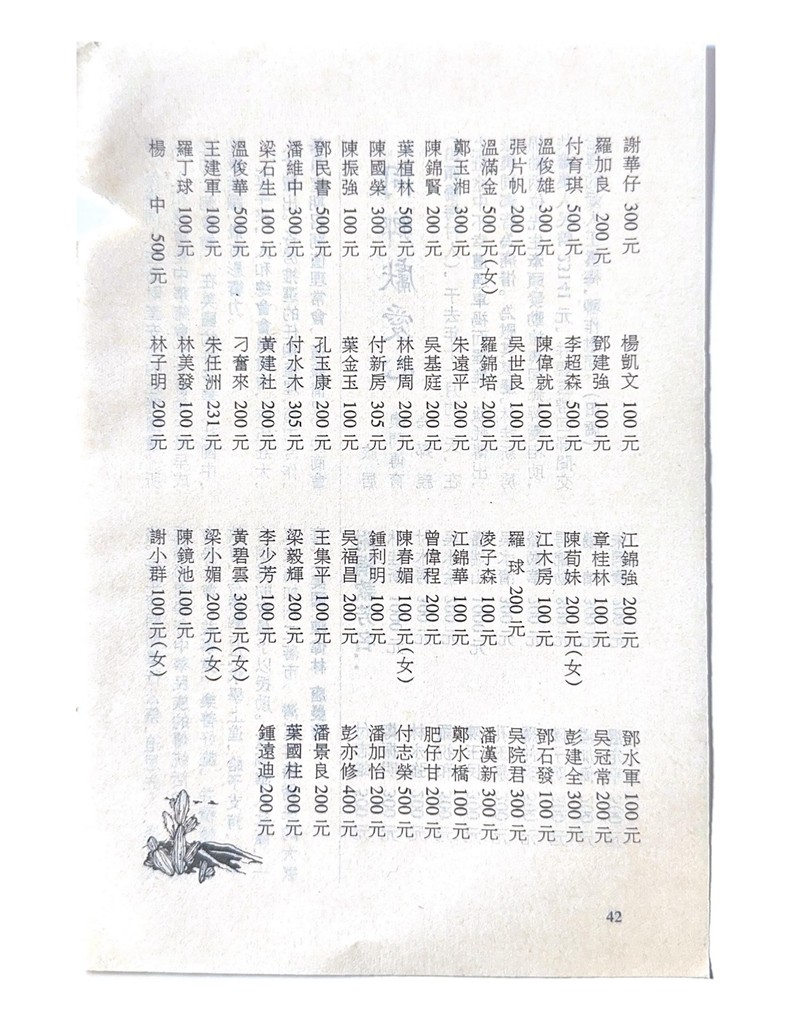 謝華仔 300元
羅加良 200元
付育琪 500元
溫俊雄 300元
張片帆 200元
溫滿金 500元(女)
鄭玉湘 300元
陳錦賢 200元
葉植林 500元
陳國榮 300元
陳振強 100元
鄧民書 500元
潘維中 300元
梁石生 100元
溫俊華 500元
王建軍 100元
羅丁球 100元
楊　中 500元
楊凱文 100元
鄧建強 100元
李超森 500元
陳偉就 100元
吳世良 100元
羅錦培 200元
朱遠平 200元
吳基庭 200元
林維周 200元
付新房 305元
葉金玉 100元
孔玉康 200元
付水木 305元
黃建社 200元
刁奮來 200元
朱任洲 231元
林美發 100元
林子明 200元
江錦強 200元
章桂林 100元
陳荀妹 200元(女)
江木房 100元
羅　球 200元
凌子森 100元
江錦華 100元
曾偉程 200元
陳春媚 100元(女)
鍾利明 100元
吳福昌 200元
王集平 100元
梁毅輝 200元
李少芳 100元
黃碧雲 300元(女)
梁小媚 200元(女)
陳鏡池 100元
謝小群 100元(女)
鄧水軍 100元
吳冠常 200元
彭建全 300元
鄧石發 100元
吳院君 300元
潘漢新 300元
鄭水橋 100元
肥仔甘 200元
付志榮 500元
潘加怡 200元
彭亦修 400元
潘景良 200元
葉國柱 500元
鍾遠迪 200元
42